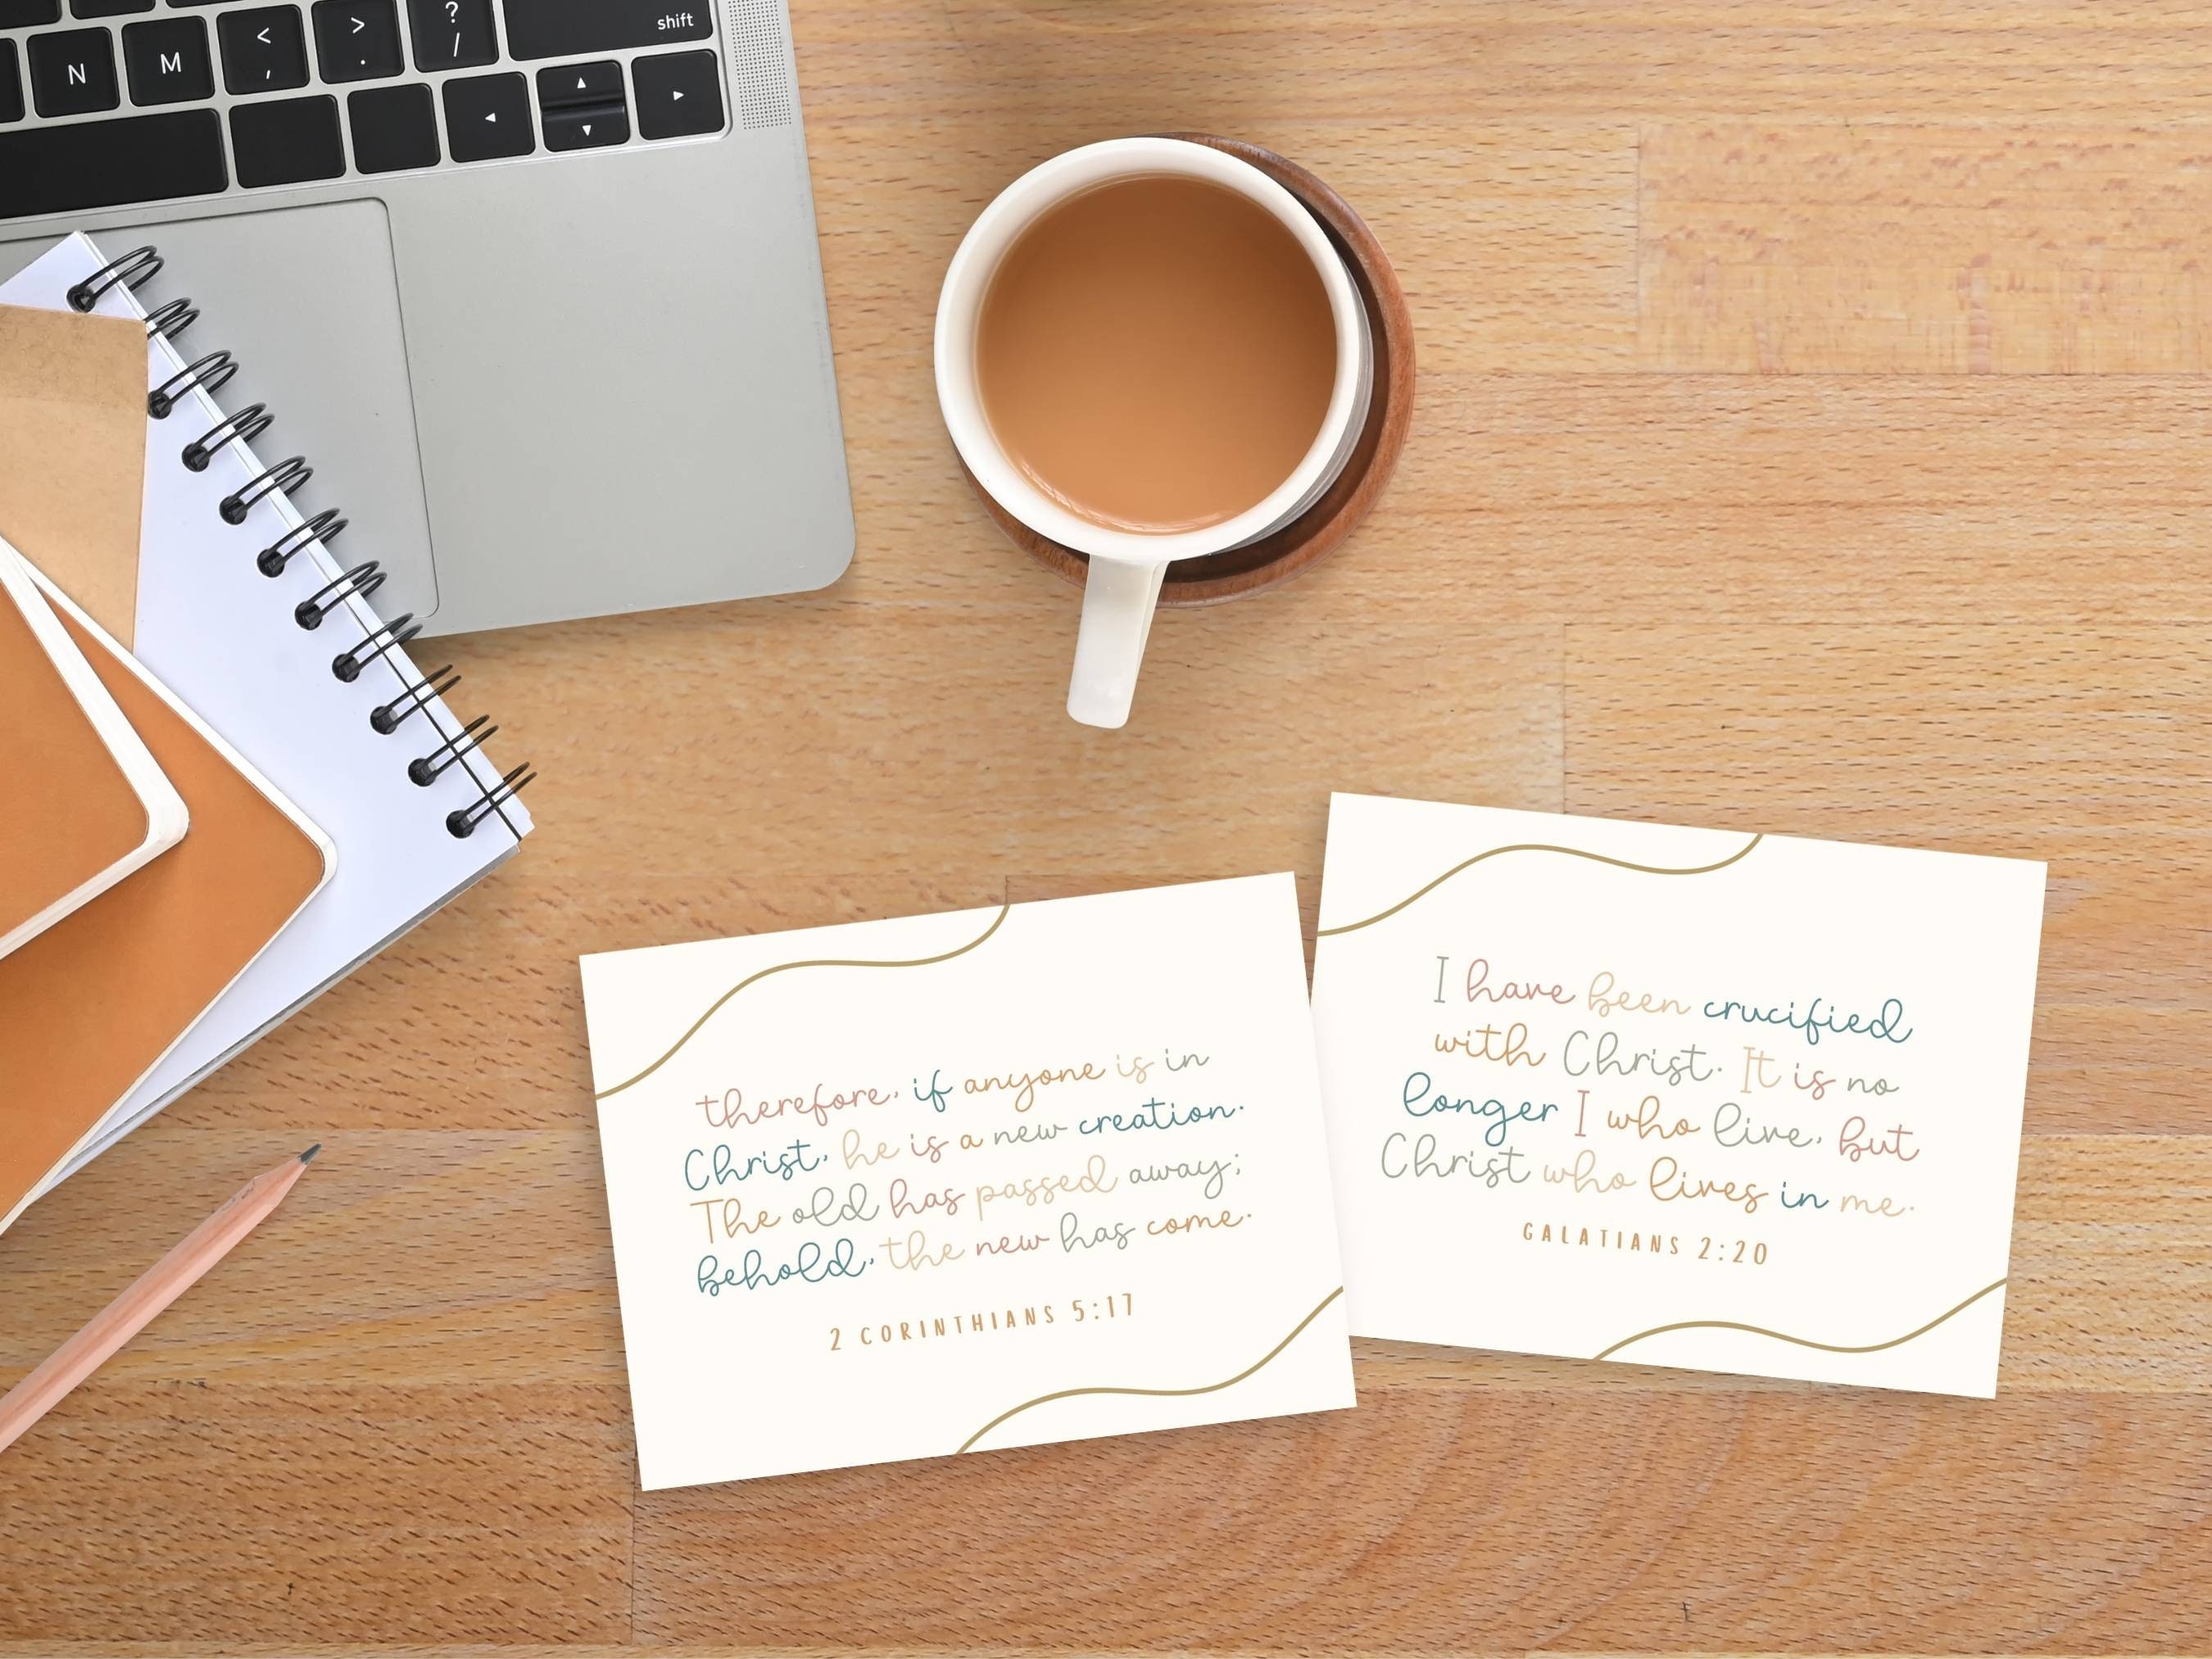 shift
N M < , > . ? /
therefore, if anyone is in
Christ, he is a new creation.
The old has passed away;
behold, the new has come.
2 CORINTHIANS 5:17
I have been crucified
with Christ. It is no
longer I who live, but
Christ who lives in me.
GALATIANS 2:20